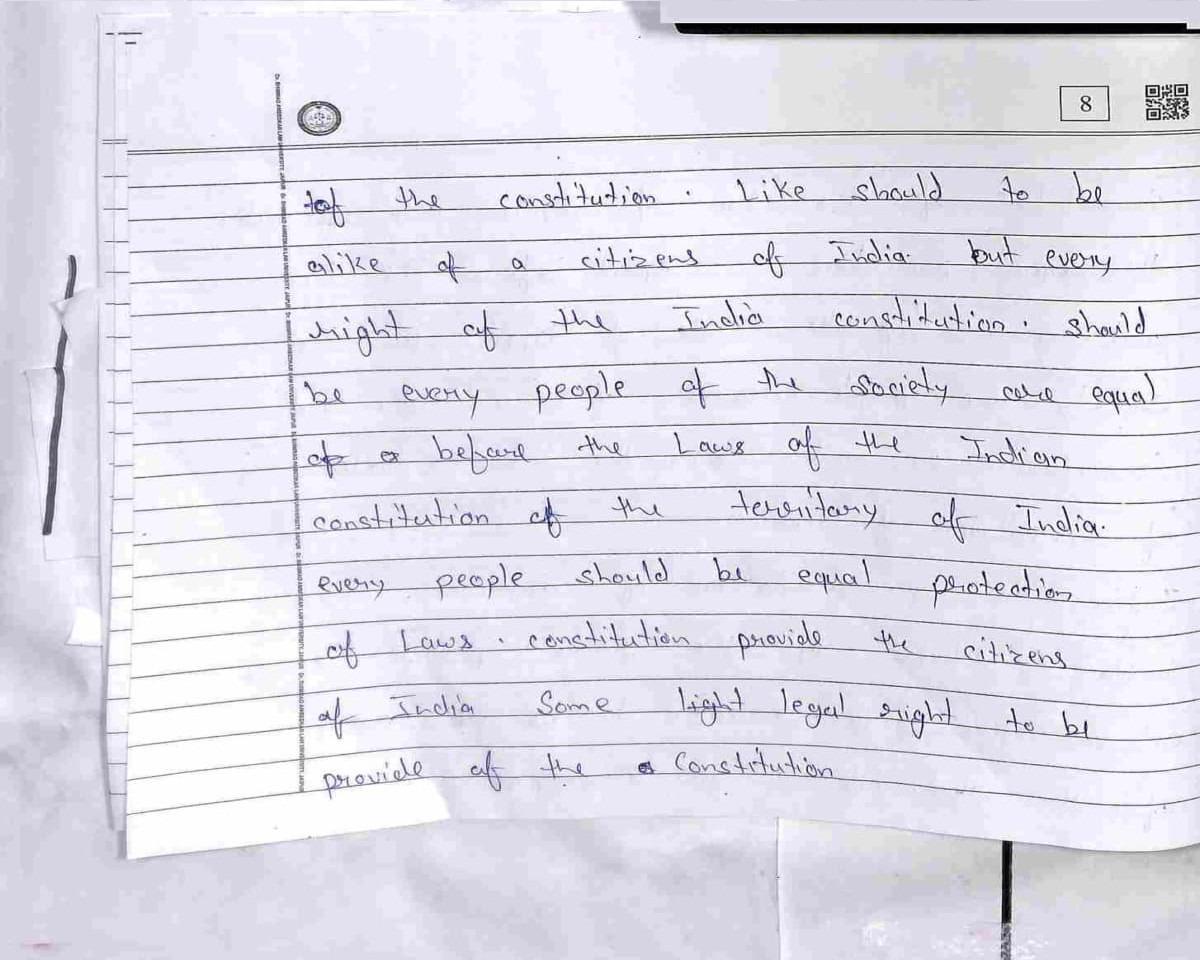 8
of the constitution . Like should to be
alike of a citizens of India. but every
right of the India constitution . should
be every people of the society are equal
of a before the Laws of the Indian
constitution of the territory of India.
every people should be equal protection
of Laws . constitution provide the citizens
of India Some light legal right to be
provide of the Constitution